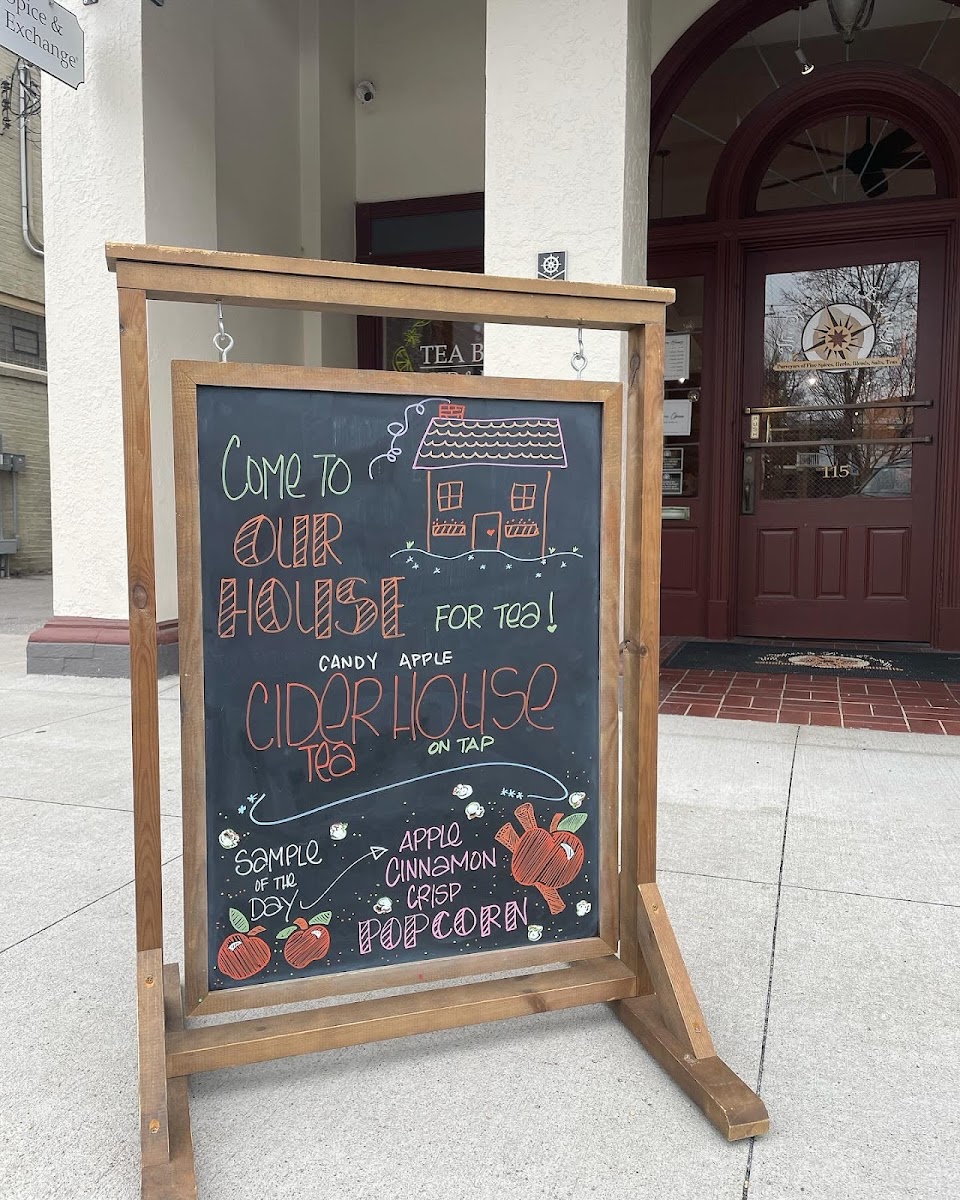 Spice &
Exchange
TEA B
COME TO
OUR
HOUSE
FOR TEA!
CANDY APPLE
CIDERHOUSE
TEA
ON TAP
SAMPLE
OF THE
DAY
APPLE
CINNAMON
CRISP
POPCORN
Purveyors of Fine Spices, Herbs, Blends, Salts, Teas
115